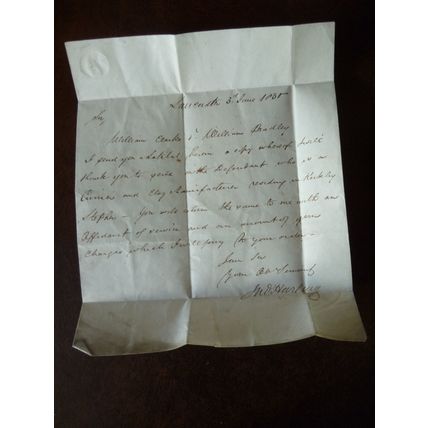 Lancaster 3d June 1835
Sir
William Clarke v William Bradley
I send you a Latitat herein a copy whereof I will
thank you to serve on the Defendant who is a
Currier and Clog Manufacturer residing in Kirkby
Stephen – You will return the same to me with an
Affidavit of service and an amount of your
Charges which I will pay to your order –
I am Sir
Your Ob Servant